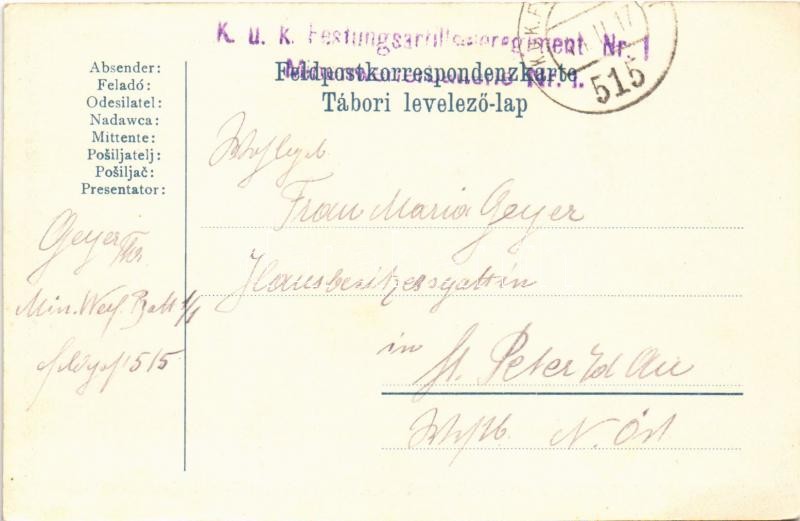 K. u. k. Festungsartillerieregiment Nr. 1
Nr. 1.
K.u.K. F
II 17
515
Feldpostkorrespondenzkarte
Tábori levelező-lap
Absender:
Feladó:
Odesílatel:
Nadawca:
Mittente:
Pošiljatelj:
Pošiljač:
Presentator:
Geyer
Min. Werf. Batt 1/1
515
Wohlgeb.
Frau Maria Geyer
Hausbesitzersgattin
in
St. Peter i/d Au
N. Öst